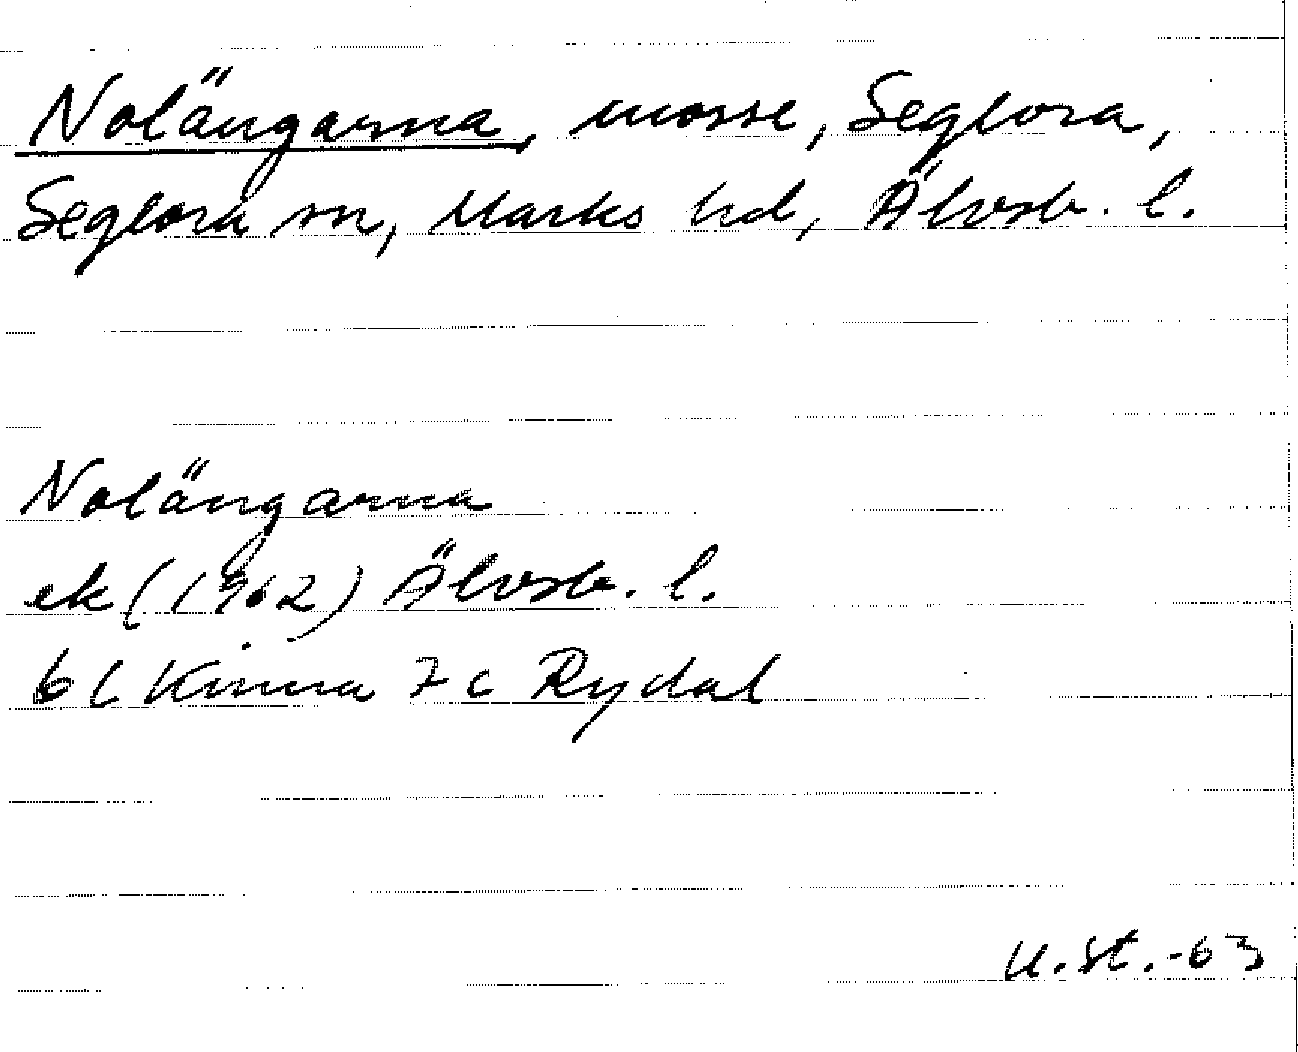 Nolängarna, mosse, Seglora,
Seglora sn, Marks hd, Älvsb. l.
Nolängarna
ek (1962) Älvsb. l.
6c Kinna 7c Rydal
U.St.-63